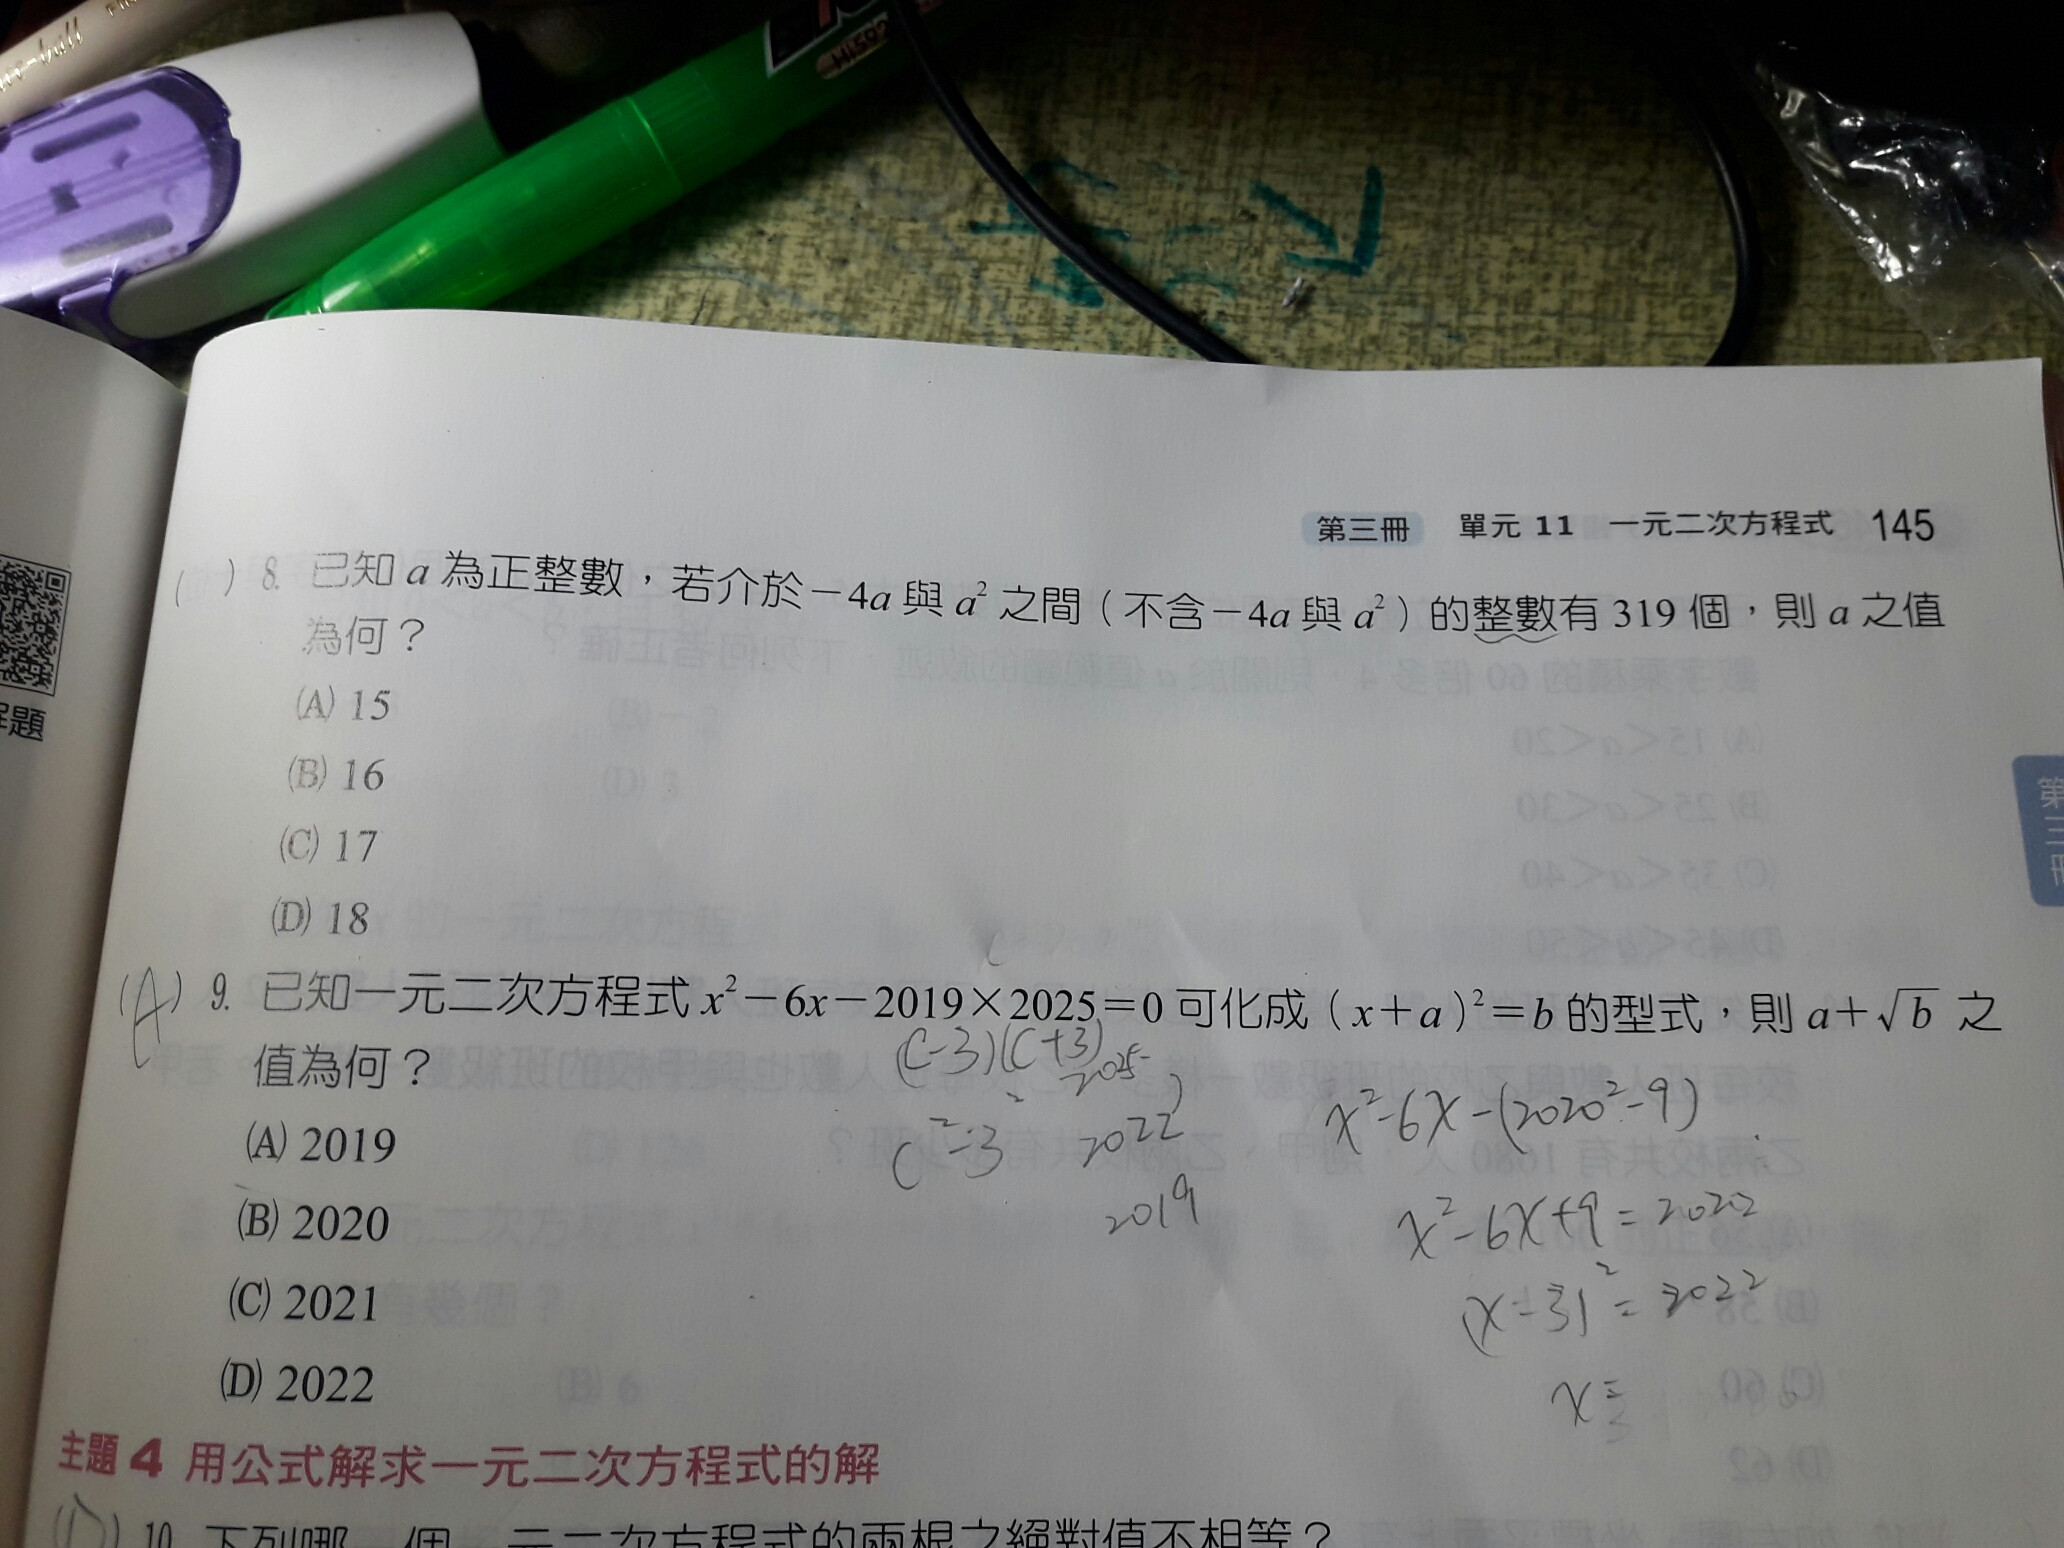 第三冊 單元 11 一元二次方程式 145
( ) 8. 已知 a 為正整數，若介於−4a 與 a² 之間（不含−4a 與 a²）的整數有 319 個，則 a 之值
為何？
(A) 15
(B) 16
(C) 17
(D) 18
(A) 9. 已知一元二次方程式 x²−6x−2019×2025=0 可化成（x+a）²=b 的型式，則 a+√b 之
值為何？
(A) 2019
(B) 2020
(C) 2021
(D) 2022
(C-3)(C+3)
2025
C²-3²
2022
2019
x²-6x-(2020²-9)
x²-6x+9=2022
(x-3)²=2022
x=
主題 4 用公式解求一元二次方程式的解
(D) 10. 下列哪一個一元二次方程式的兩根之絕對值不相等？
解題
第三冊